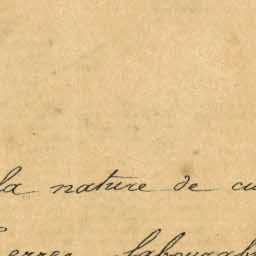 la nature de cu
terres labourab